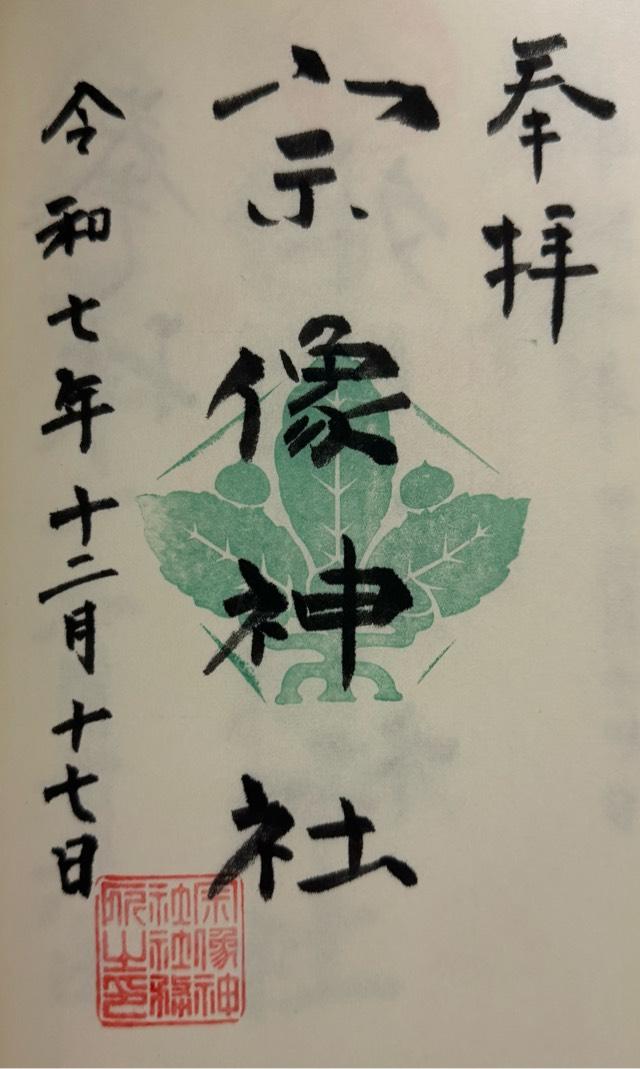 奉拝
宗像神社
令和七年十二月十七日
宗像神
社社務
所之印